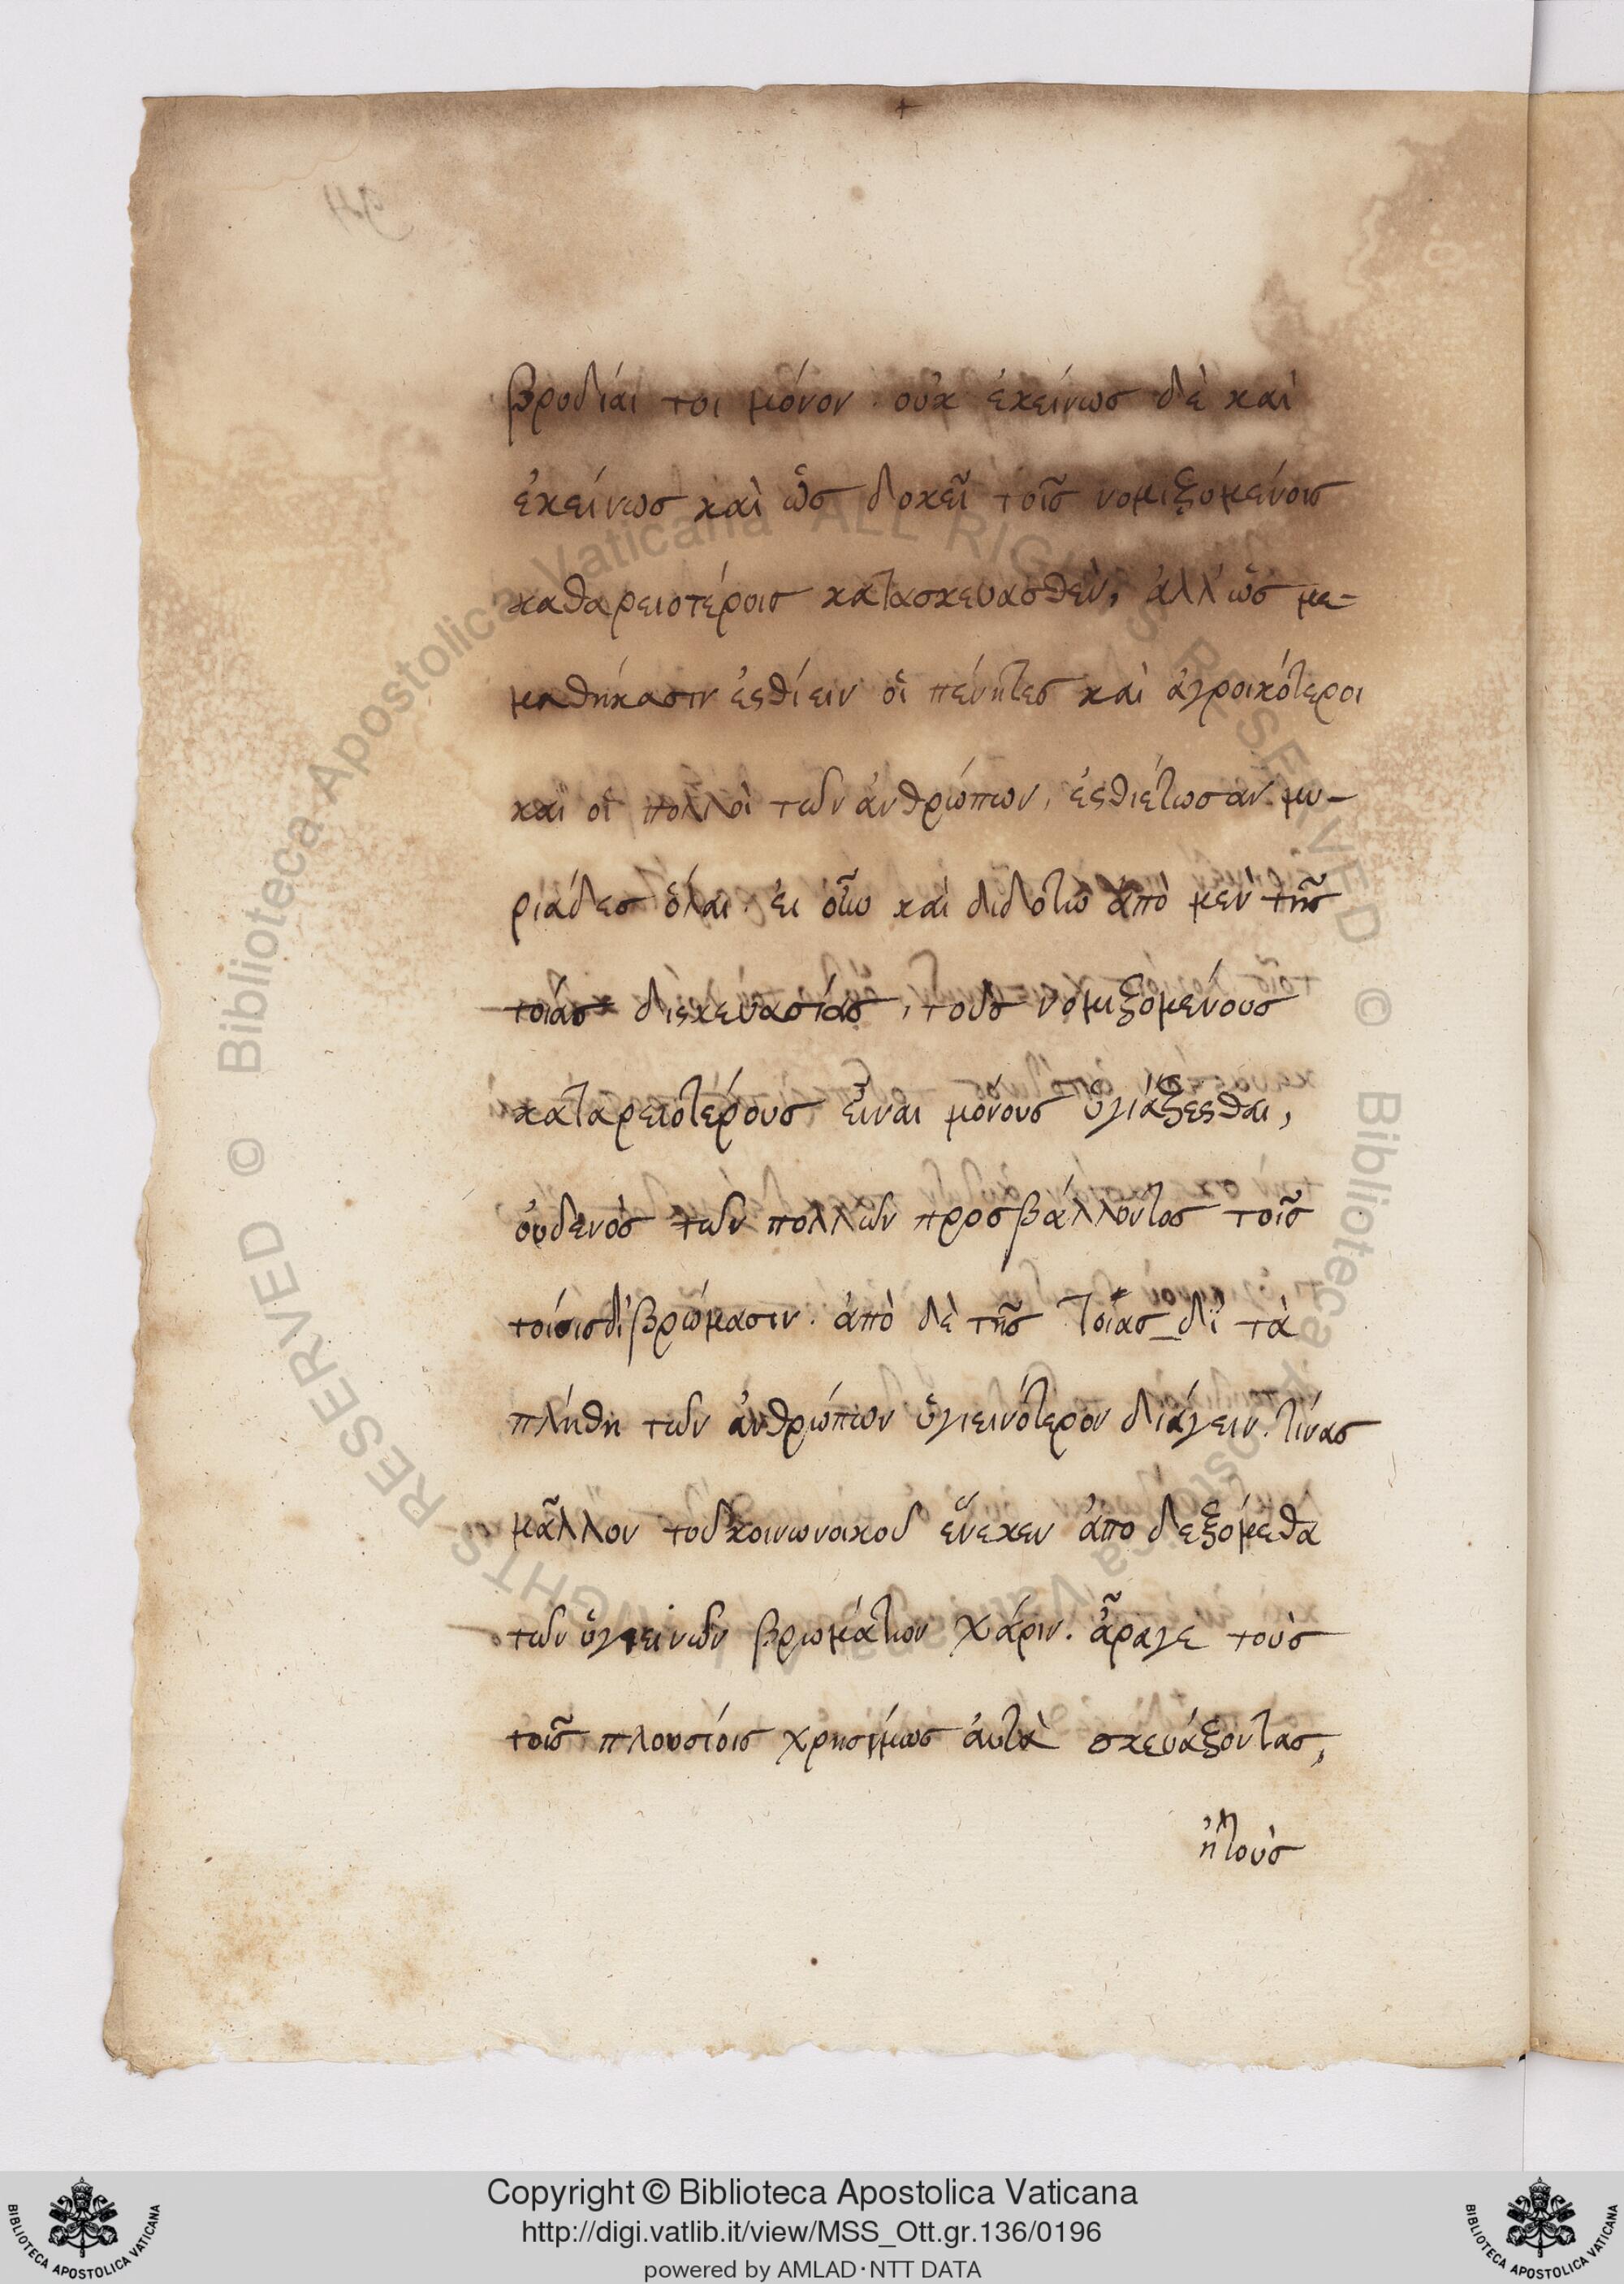 βροδίαί τοι μόνον. οὐκ ἐκείνως δὲ καὶ
ἐκείνως καὶ ὧς δοκεῖ τοῖς νομιξομένοις
καθαρειοτέροις κατασκευασθὲν, ἀλλ' ὧς με-
μαθήκασιν ἐσθίειν οἱ πένητες καὶ ἀγροικότεροι
καὶ οἱ πολλοὶ τῶν ἀνθρώπων, ἐσθιέτωσαν μυ-
ριάδες ὅλαι. καὶ διδότω ἀπὸ μὲν τῆς
διεκευασίας, τοὺς νομιξομένους
καταρειοτέρους εἶναι μόνους ὑγιάξεσθαι,
οὐδενὸς τῶν πολλῶν προσβάλλοντος τοῖς
βρώμασιν. ἀπὸ δὲ τῆς τοίας δὶ τὰ
πλήθη τῶν ἀνθρώπων ὑγιεινότερον διάγειν. τίνας
μᾶλλον τοῦ κοινωνοικοῦ ἕνεκεν ἀπο δεξόμεθα
τῶν ὑγιεινῶν βρωμάτων χάριν. ἆραγε τοὺς
τοῖς πλουσίοις χρησίμως ἀυτὰ σκευάξοντας,
ἢ τοὺς
Copyright © Biblioteca Apostolica Vaticana
http://digi.vatlib.it/view/MSS_Ott.gr.136/0196
powered by AMLAD·NTT DATA